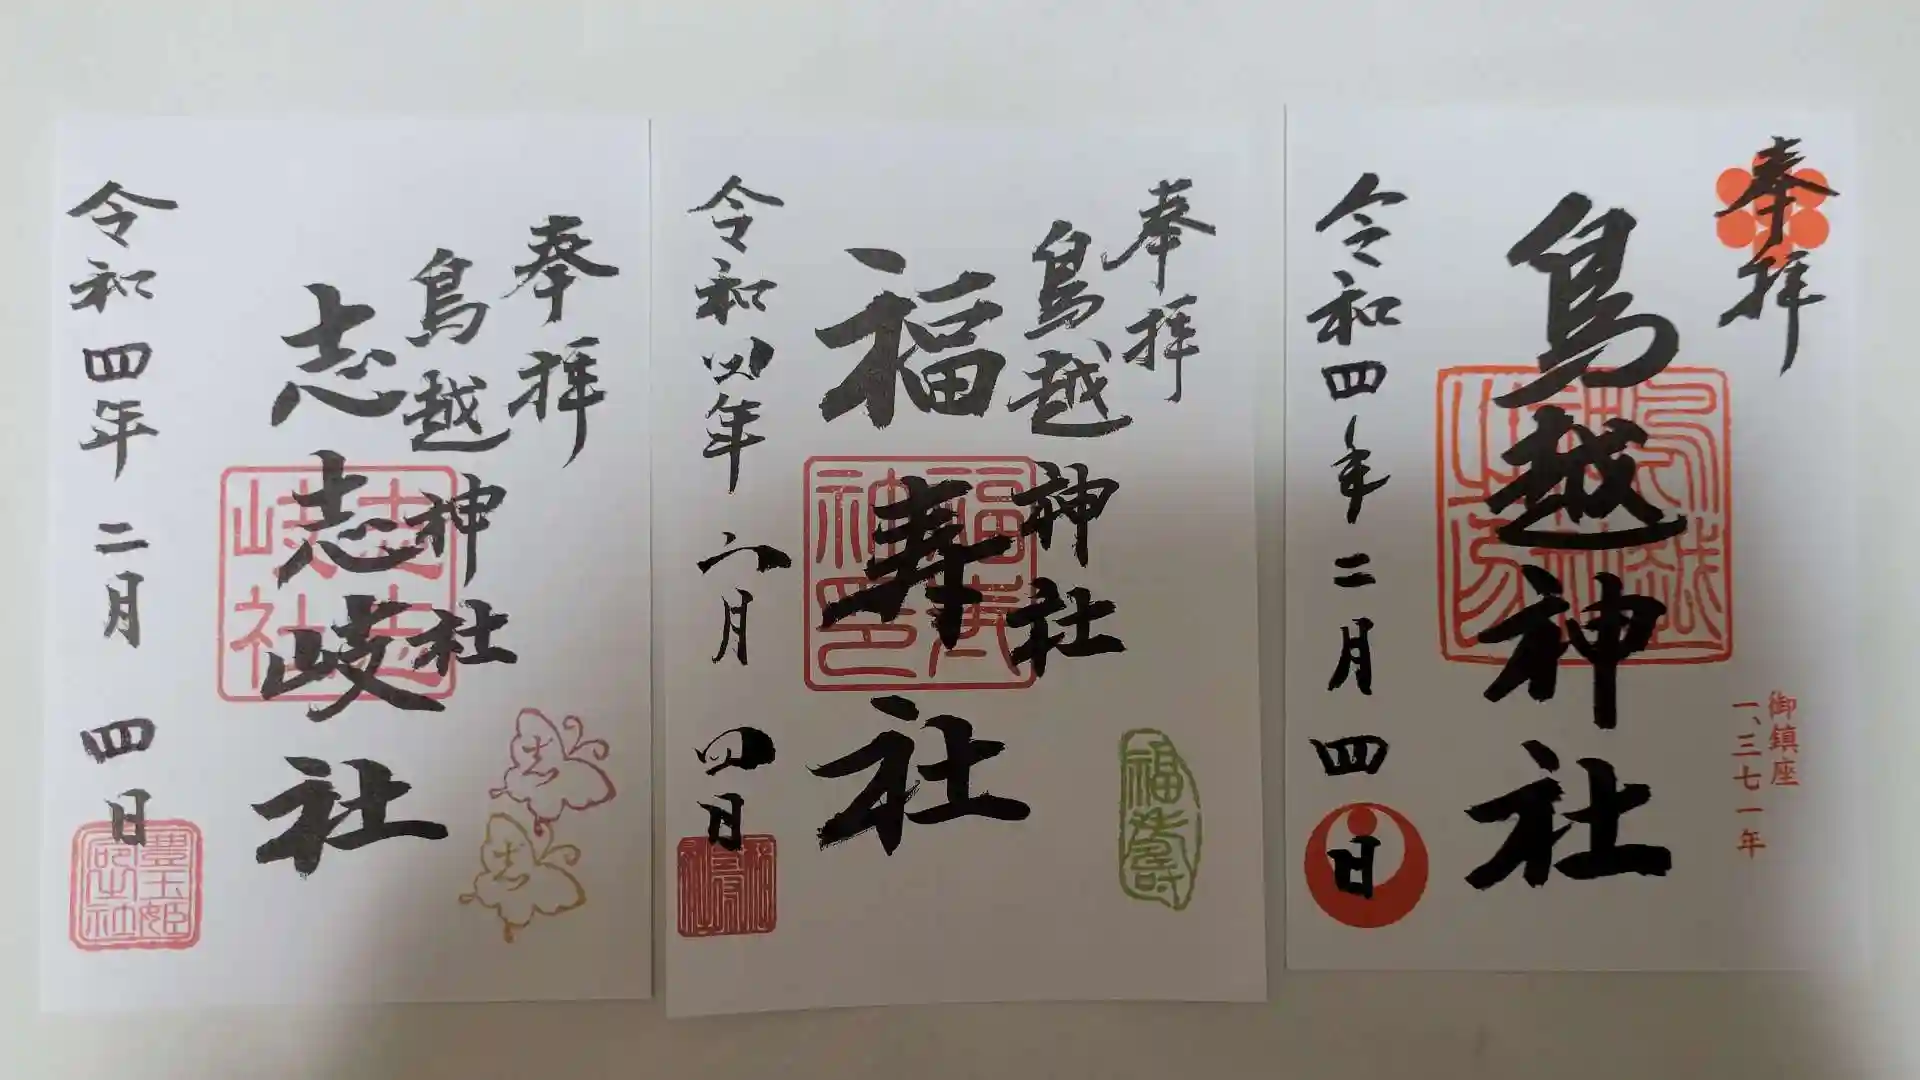 奉拝
鳥越神社
御鎮座
一、三七一年
令和四年二月四日
奉拝
鳥越神社
福寿社
福寿
令和四年六月四日
奉拝
鳥越神社
志志岐社
志志岐社
志
志
豊玉姫
令和四年二月四日